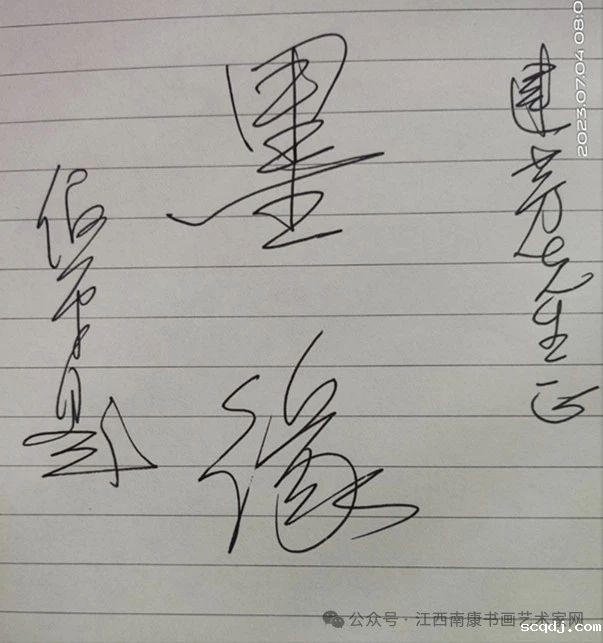 建芳先生正
墨缘
题
2023.07.04 08:0
公众号·江西南康书画艺术家网
scqdj.com